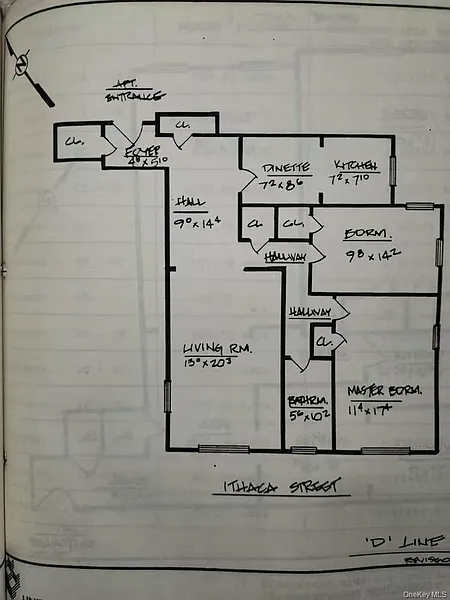 APT.
ENTRANCE
CL.
CL.
FOYER
4⁸ x 5¹⁰
DINETTE
7² x 8⁶
KITCHEN
7² x 7¹⁰
HALL
9⁰ x 14⁴
CL.
CL.
BDRM.
9⁸ x 14²
HALLWAY
HALLWAY
CL.
LIVING RM.
13⁰ x 20³
BATHRM.
5⁶ x 10²
MASTER BDRM.
11⁴ x 17⁴
ITHACA STREET
'D' LINE
REVISED
OneKey MLS